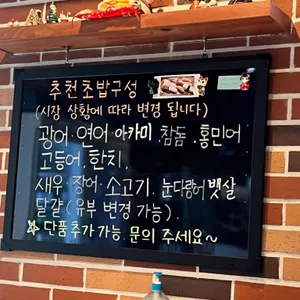 추천초밥구성
(시장 상황에 따라 변경 됩니다)
광어·연어·아카미·참돔·홍민어
고등어·한치.
새우·장어·소고기·눈다랑어뱃살
달걀(유부 변경 가능).
☆ 단품추가 가능. 문의 주세요~